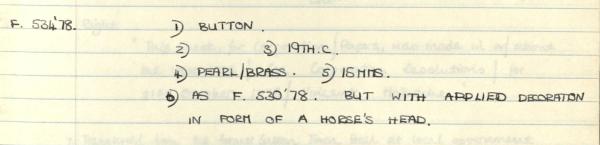 F. 534'78. 1) BUTTON.
2) 3) 19TH.C.
4) PEARL/BRASS. 5) 15MMS.
6) AS F. 530'78. BUT WITH APPLIED DECORATION
IN FORM OF A HORSE'S HEAD.